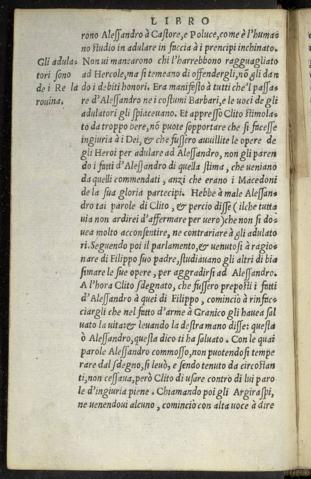 LIBRO
rono Alessandro à Castore, e Poluce, come è l'huma
no studio in adulare in faccia à i prencipi inchinato.
Gli adula-
tori sono
de i Re la
rouina.
Non ui mancarono chi l'harebbono ragguagliato
ad Hercole, ma si temeano di offendergli, nõ gli dan
do i debiti honori. Era manifesto à tutti che'l passa-
re d'Alessandro ne i costumi Barbari, e le uoci de gli
adulatori gli spiaceuano. Et appresso Clito stimola-
to da troppo bere, nõ puote sopportare che si facesse
ingiuria à i Dei, & che fussero auuilite le opere de
gli Heroi per adulare ad Alessandro, non gli paren
do i fatti d'Alessandro di quella stima, che ueniano
da quelli commendati, anzi che erano i Macedoni
de la sua gloria partecipi. Hebbe à male Alessan-
dro tai parole di Clito, & percio disse (ilche tutta
uia non ardirei d'affermare per uero) che non si do-
uea molto acconsentire, ne contrariare à gli adulato
ri. Seguendo poi il parlamento, & uenutosi à ragio-
nare di Filippo suo padre, studiauano gli altri di bia
simare le sue opere, per aggradirsi ad Alessandro.
A l'hora Clito sdegnato, che fussero preposti i fatti
d'Alessandro à quei di Filippo, cominciò à rinfac-
ciargli che nel fatto d'arme à Granico gli hauea sal
uato la uita: & leuando la destra mano disse: questa
ò Alessandro, questa dico ti ha saluato. Con le quai
parole Alessandro commosso, non puotendosi tempe
rare dal sdegno, si leuò, e sendo tenuto da circostan
ti, non cessaua, però Clito di usare contro di lui paro
le d'ingiuria piene. Chiamando poi gli Argiraspi,
ne uenendoui alcuno, cominciò con alta uoce à dire